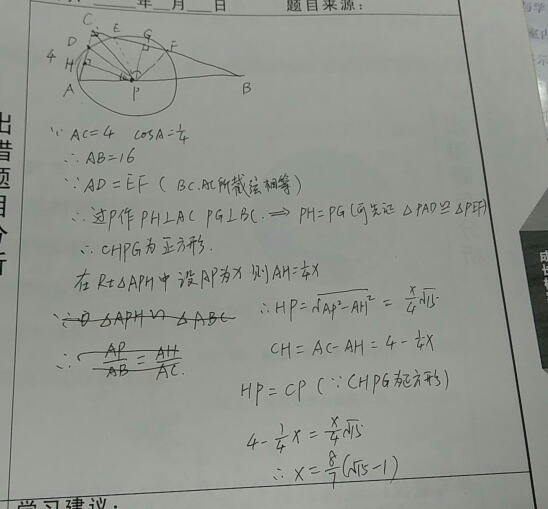 年 月 日 题目来源：
C E G
D F
4 H
A P B
∵ AC=4 cosA=¼
∴ AB=16
∵ AD=EF（BC.AC所截弦相等）
∴ 过P作PH⊥AC PG⊥BC. ⇒ PH=PG（可先证 △PAD≌△PEF）
∴ CHPG为正方形.
在Rt△APH中 设AP为x 则AH=¼x
∵ ∴ △APH ∽ △ABC ∴ HP=√AP²-AH² = x/4 √15
∴ AP/AB = AH/AC. CH=AC-AH=4-¼x
HP=CP（∵CHPG为正方形）
4-¼x = x/4 √15
∴ x=8/7(√15-1)
出错题目分析
学习建议：